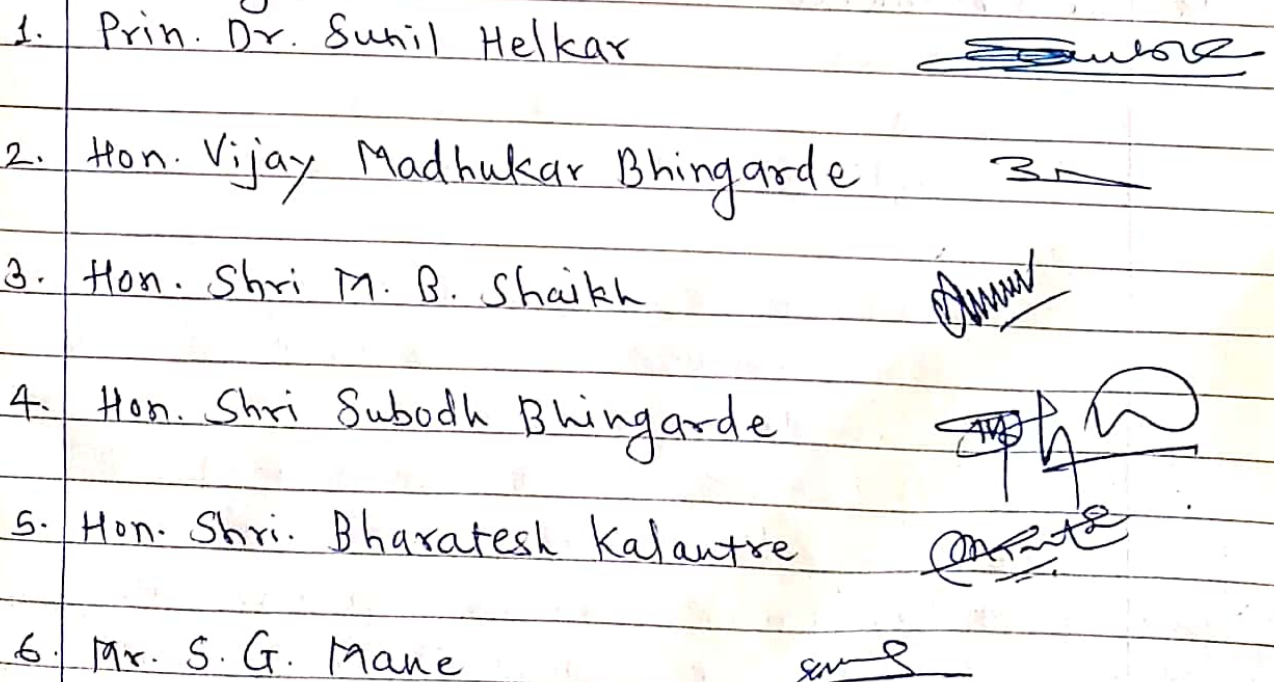 1. Prin. Dr. Sunil Helkar
2. Hon. Vijay Madhukar Bhingarde
3. Hon. Shri M. B. Shaikh
4. Hon. Shri Subodh Bhingarde
5. Hon. Shri. Bharatesh Kalantre
6. Mr. S. G. Mane